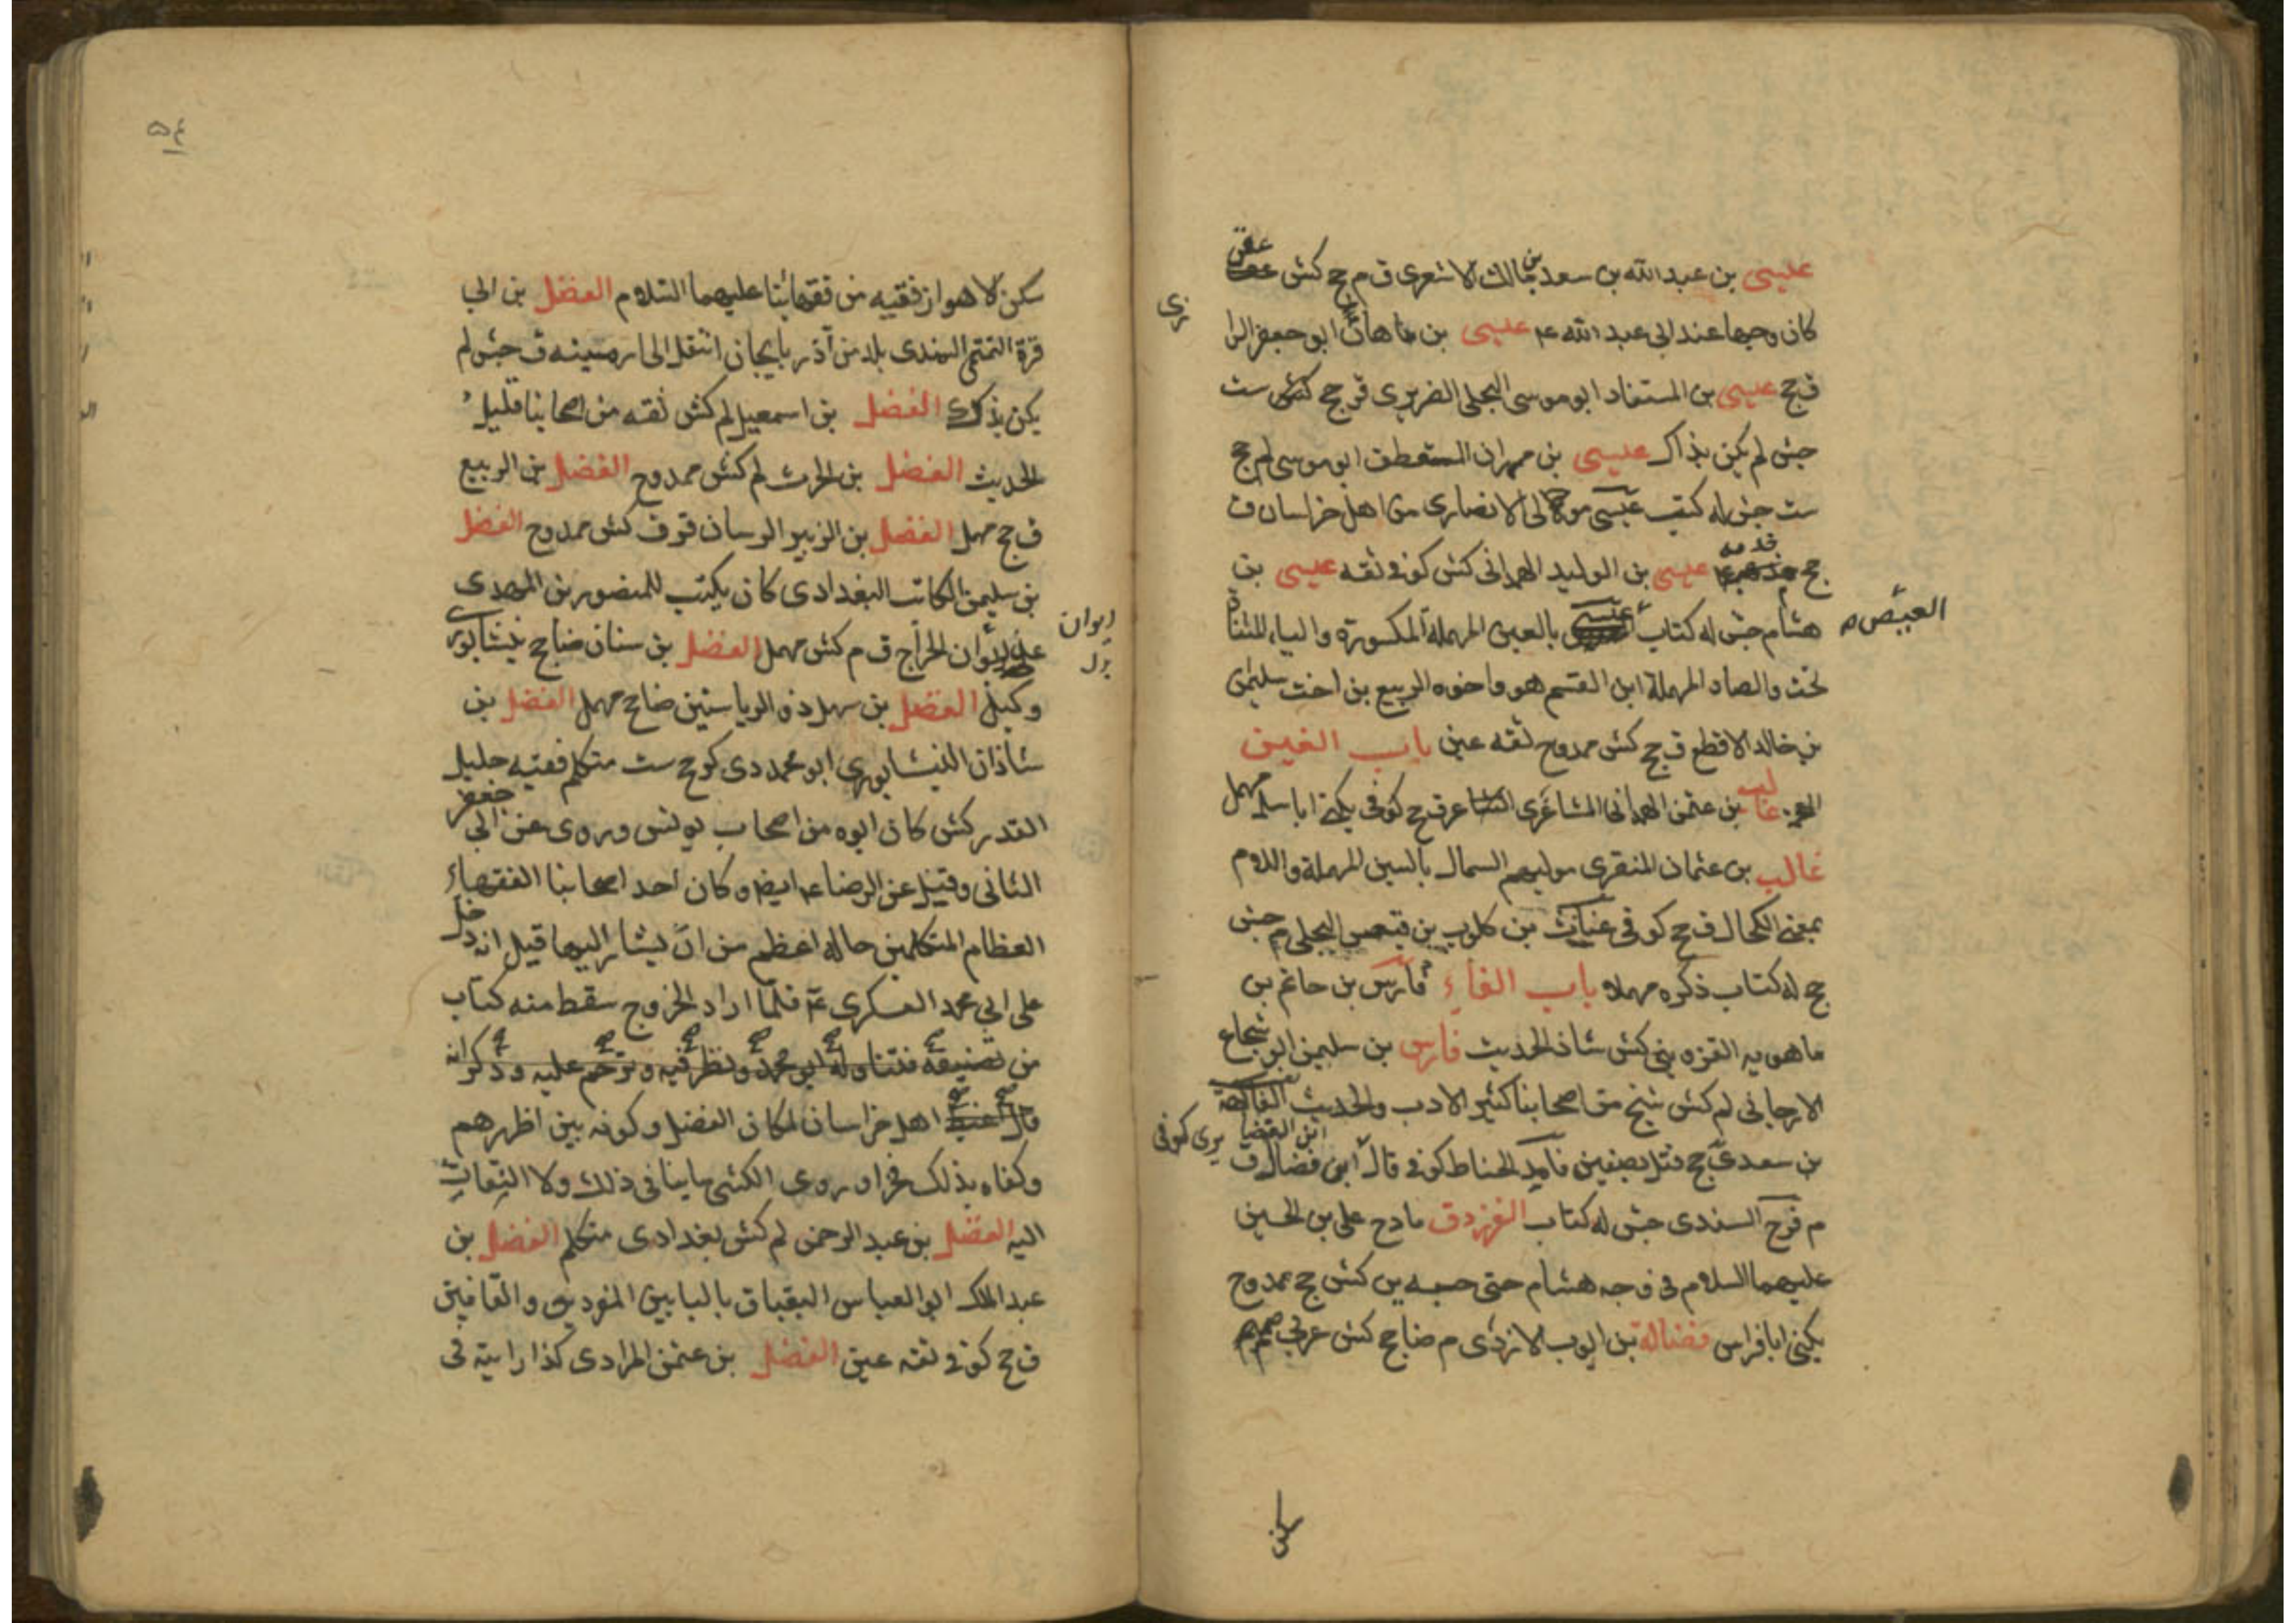 عيسى بن عبدالله بن سعد بن مالك الاشعرى ق م جح كش
كان وجيها عند ابى عبدالله عم عيسى بن ماهان ابو جعفر الرا
زى
ق جح عيسى بن المستفاد ابو موسى البجلى الضرير ى ق جح كش ست
جش لم يكن بذاك عيسى بن مهران المستعطف ابو موسى لم جح
ست جش له كتب عيسى الانصارى من اهل خراسان ق
جح عيسى بن الوليد الهمدانى كش كوفى ثقه عيسى بن
هشام جش له كتاب بالعين المهملة المكسورة والياء المثناة
العيص
تحت والصاد المهملة ابن القسم هو واخوه الربيع بن اخت سليمن
بن خالد الاقطع ق جح كش ممدوح ثقه عين باب الغين
غالب بن عثمن الهمدانى المشاعرى الشاعر ق جح كوفى يكنى ابا سلمه مهمل
غالب بن عثمان المنقرى موليهم السمال بالسين المهملة واللام
بمعنى الكحال ق جح كوفى غياث بن كلوب بن البجلى م جش
جح له كتاب ذكره مهملا باب الفاء فارس بن حاتم بن
ماهويه القزوينى كش شاذ الحديث فارس بن سليمن ابو شجاع
الارجانى لم كش شيخ من اصحابنا كثير الادب والحديث الفاكهة
بن سعد ى جح قتل بصفين الحناط كوفى قال ابن فضال ق
م فرج السندى جش له كتاب الفرزدق مادح على بن الحسين
عليهما السلام فى وجه هشام حتى حبسه ين كش جح ممدوح
يكنى ابا فراس فضالة بن ايوب الازدى م ضا جح كش عربى صميم
سكن
٥٤
سكن الاهواز فقيه من فقهائنا عليهما السلام الفضل بن ابى
قرة التمتمى السهندى بلد من آذربايجان انتقل الى ارمينه ق جش لم
يكن بذاك الفضل بن اسمعيل لم كش ثقه من اصحابنا قليل
الحديث الفضل بن الحرث لم كش ممدوح الفضل بن الربيع
ق جح مهمل الفضل بن الزبير الرسان قر ق كش ممدوح الفضل
بن سليمن الكاتب البغدادى كان يكتب للمنصور بن المهدى
على ديوان الخراج ق م كش مهمل الفضل بن سنان ضا جح نيشابورى
ديوان
بدل
وكيل الفضل بن سهل ذو الرياستين ضا جح مهمل الفضل بن
شاذان النيشابورى ابو محمد دى كر جح ست متكلم فقيه جليل
القدر كش كان ابوه من اصحاب يونس وروى عن ابى جعفر
الثانى وقيل عن الرضا عم ايضا وكان احد اصحابنا الفقهاء
العظام المتكلمين حاله اعظم من ان يشار اليها قيل انه دخل
على ابى محمد العسكرى ع فلما اراد الخروج سقط منه كتاب
من تصنيفه فتناوله ابو محمد ونظر فيه وترحم عليه وذكر انه
قال اغبط اهل خراسان لمكان الفضل وكونه بين اظهرهم
وكفاه بذلك فخرا وروى الكشى ما ينافى ذلك ولا التفات
اليه الفضل بن عبد الرحمن لم كش بغدادى متكلم الفضل بن
عبد الملك ابو العباس البقباق بالبابين المفردين والقافين
ق جح كوفى ثقه عين الفضل بن عثمن المرادى كذا رايته فى